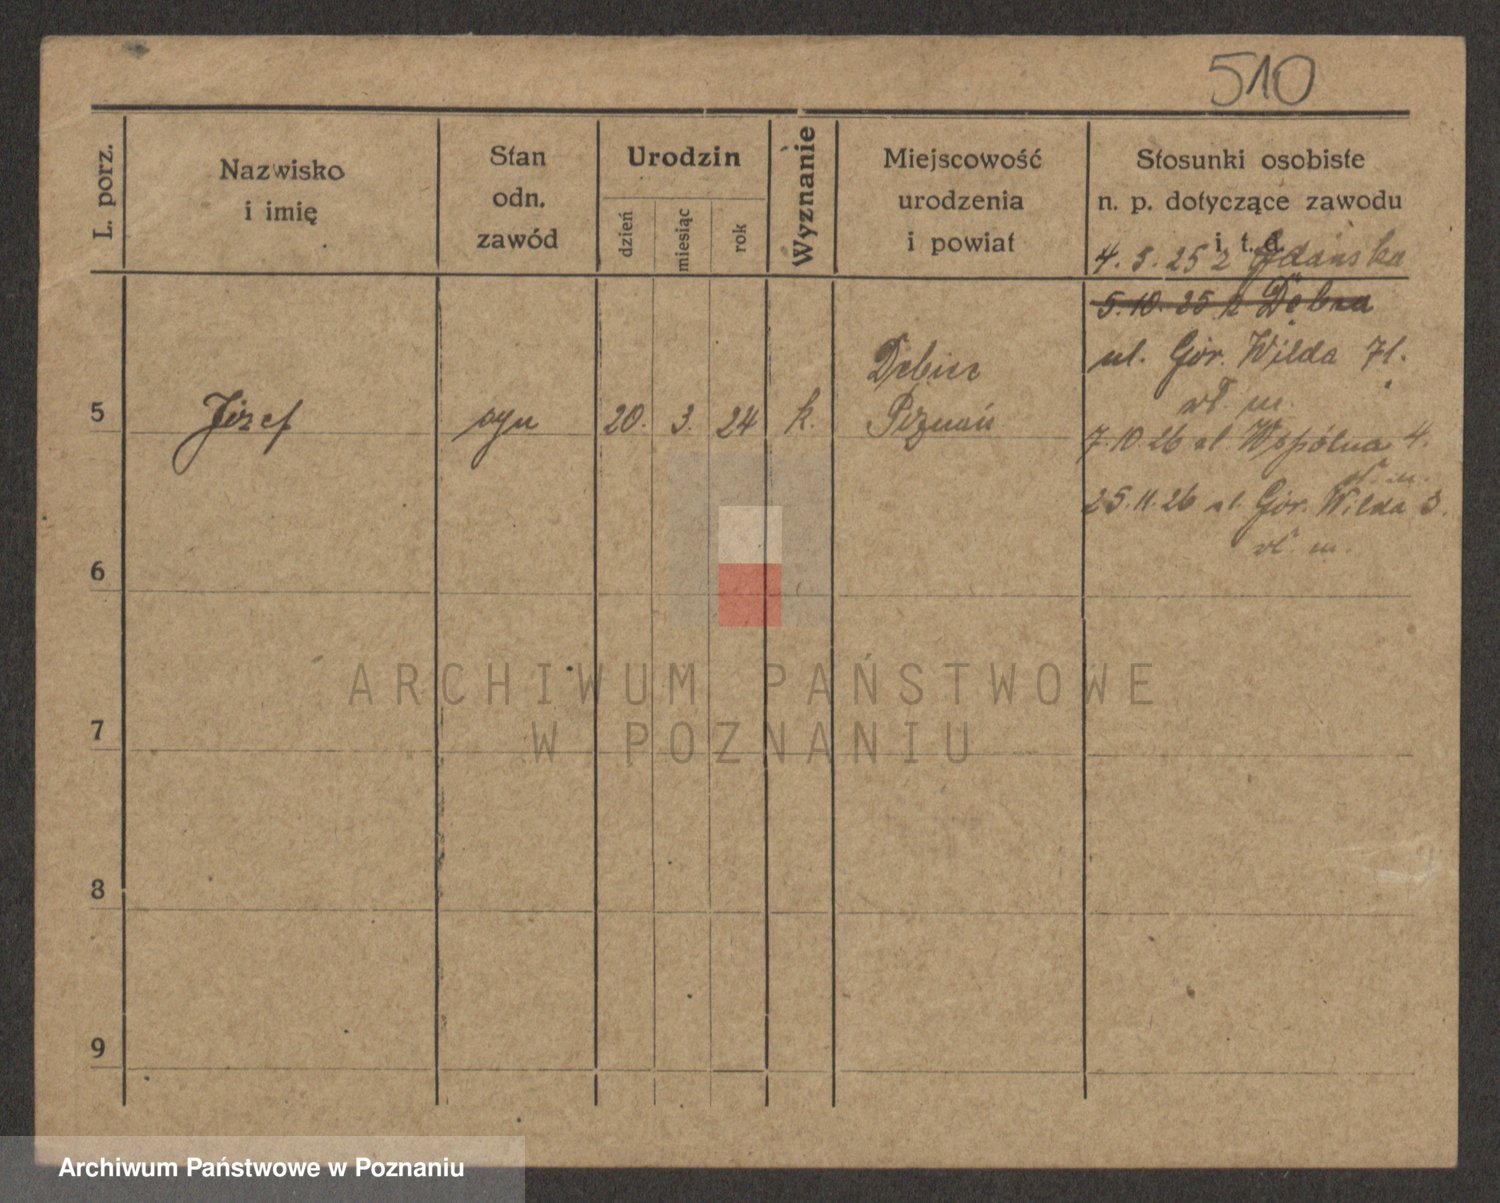 510
L. porz.
Nazwisko
i imię
Stan
odn.
zawód
Urodzin
dzień
miesiąc
rok
Wyznanie
Miejscowość
urodzenia
i powiat
Stosunki osobiste
n. p. dotyczące zawodu
i. t. d.
4. 5. 25 z Gdańska
5. 10. 25 z
ul. Gór. Wilda 71.
wł. m.
5
Józef
syn
20. 3. 24
k.
Dębiec
Poznań
7. 10. 26 ul. Wspólna 4.
wł. m.
25. 11. 26 ul. Gór. Wilda 3.
wł. m.
6
7
8
9
ARCHIWUM PAŃSTWOWE
W POZNANIU
Archiwum Państwowe w Poznaniu